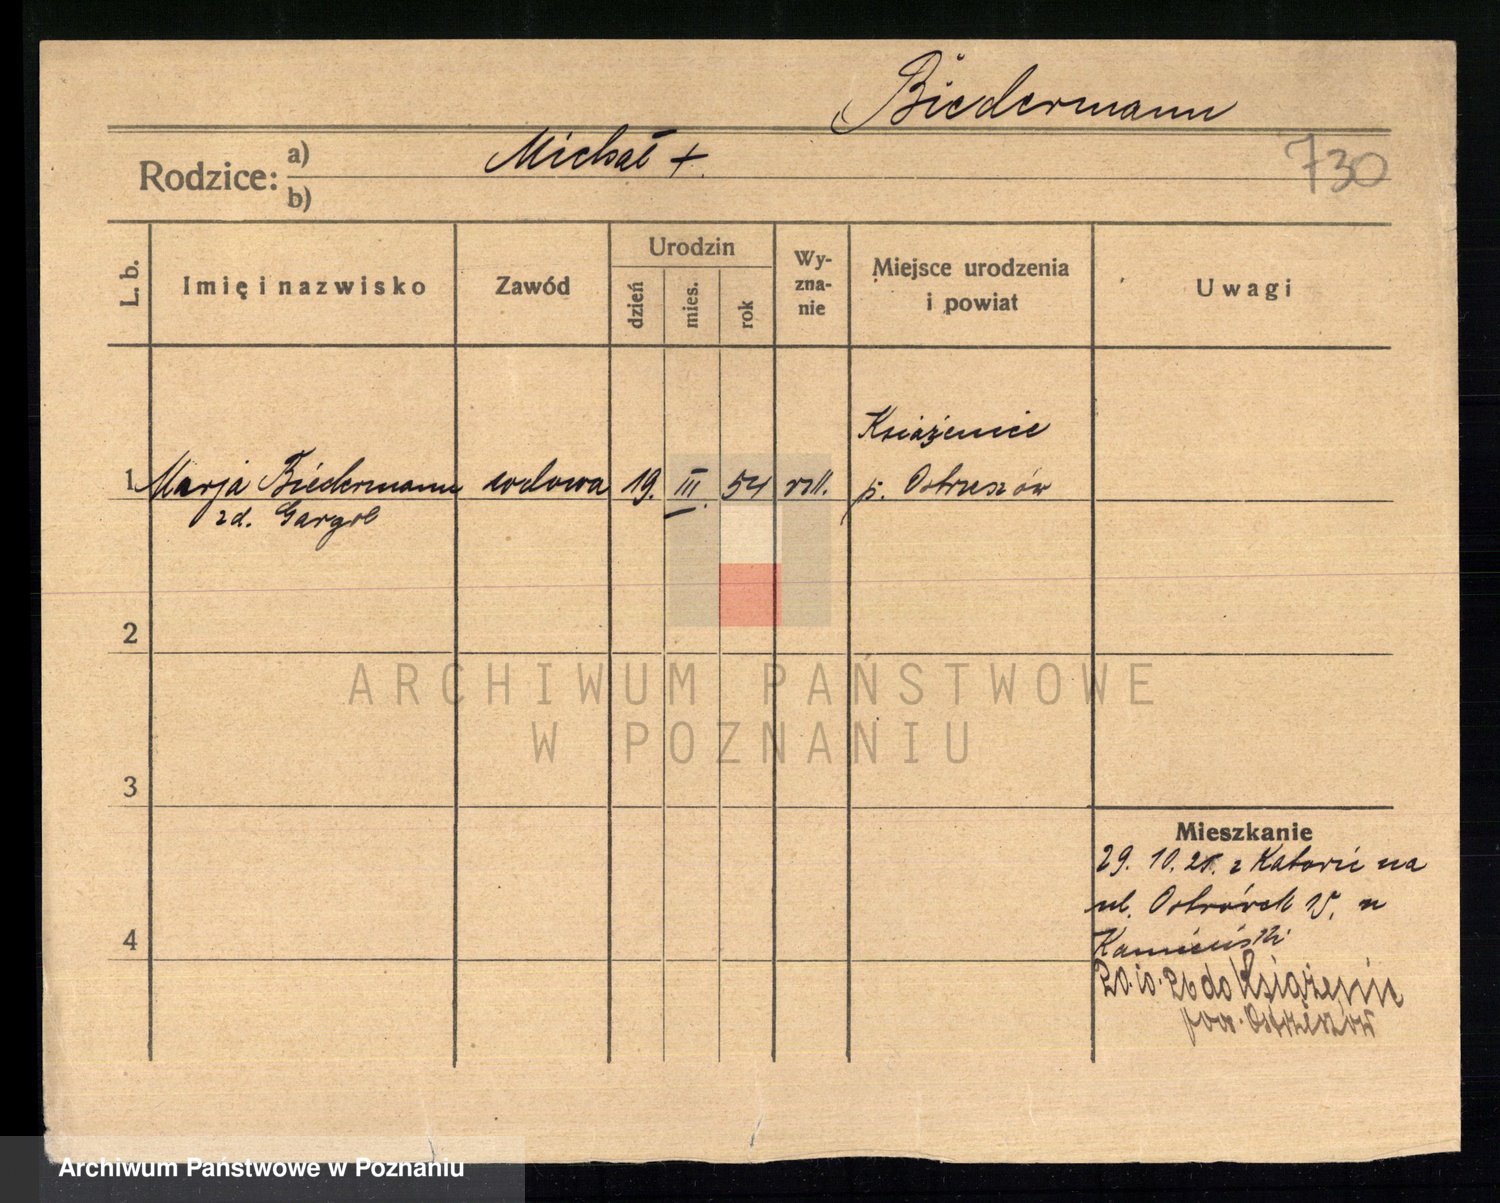 Biedermann
Rodzice: a) Michał +
b)
730
L. b. Imię i nazwisko Zawód Urodzin dzień mies. rok Wy-zna-nie Miejsce urodzenia i powiat Uwagi
Książenice
1 Marja Biedermann wdowa 19. III. 54 p. Ostrzeszów
zd. Gargol
2
ARCHIWUM PAŃSTWOWE
W POZNANIU
3
Mieszkanie
29. 10. z na
ul. Ostrówek 15. u
4 Kamieński
20.10.26 do Książenic
pow. Ostrzeszów
Archiwum Państwowe w Poznaniu